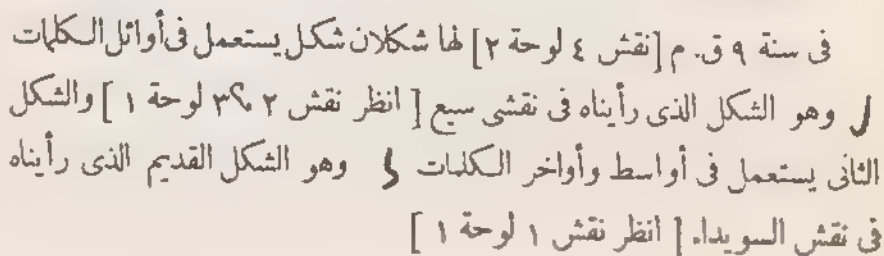 فى سنة ٩ ق. م [نقش ٤ لوحة ٢] لها شكلان شكل يستعمل فى أوائل الكلمات
وهو الشكل الذى رأيناه فى نقشى سيع [ انظر نقش ٢ ، ٣ لوحة ١ ] والشكل
الثانى يستعمل فى أواسط وأواخر الكلمات وهو الشكل القديم الذى رأيناه
فى نقش السويداء [ انظر نقش ١ لوحة ١ ]